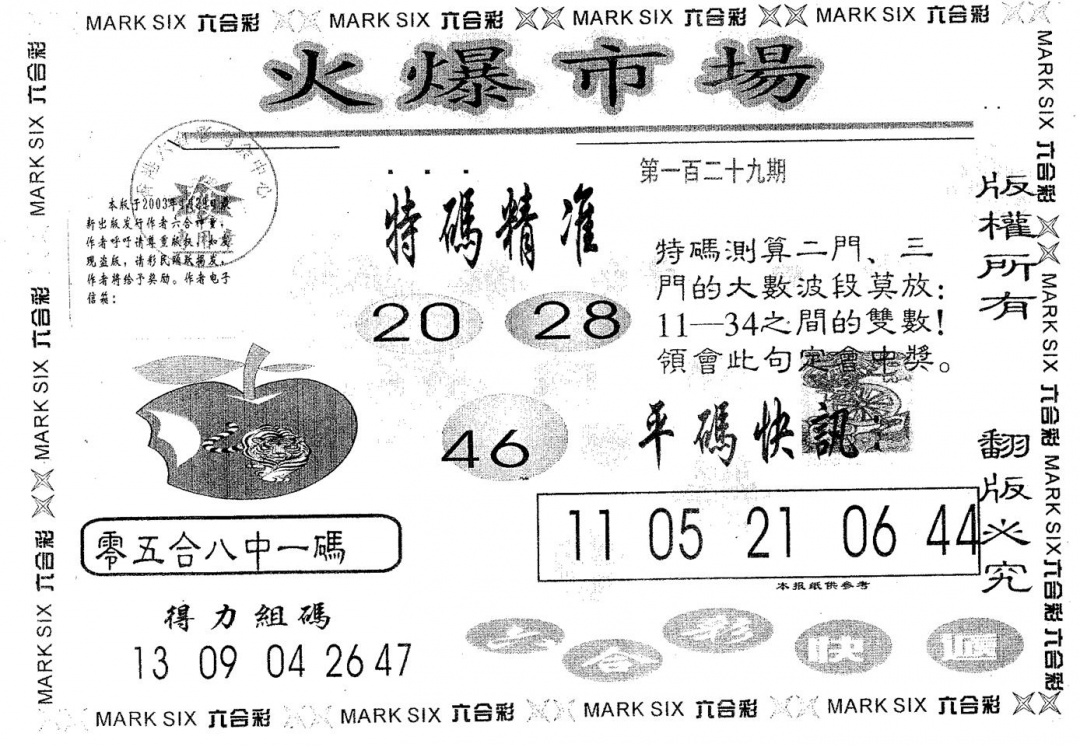 MARK SIX 六合彩 MARK SIX 六合彩 MARK SIX 六合彩 MARK SIX 六合彩
火爆市場
第一百二十九期
特碼精准
本版于2003年
新出版发行作者六合神童，
作者呼吁请尊重版权，如发
现盗版，请彩民踊跃揭发，
作者将给予奖励。作者电子
信箱：
20 28
46
特碼測算二門、三
門的大數波段莫放：
11—34之間的雙數！
領會此句定會中獎。
平碼快訊：
11 05 21 06 44
本报纸供参考
零五合八中一碼
得力組碼
13 09 04 26 47
六合彩快遞
版權所有
翻版必究
MARK SIX 六合彩 MARK SIX 六合彩 MARK SIX 六合彩
MARK SIX 六合彩 MARK SIX 六合彩 MARK SIX 六合彩 六合彩
MARK SIX 六合彩 MARK SIX 六合彩 MARK SIX 六合彩 MARK SIX 六合彩